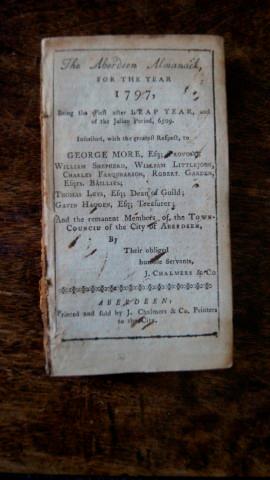 The Aberdeen Almanack,
FOR THE YEAR
1797,
Being the First after LEAP YEAR, and
of the Julian Period, 6509.
Inscribed, with the greatest Respect, to
GEORGE MORE, Esq; PROVOST
WILLIAM SHEPHERD, WILLIAM LITTLEJOHN,
CHARLES FARQUHARSON, ROBERT GARDEN,
ESQRS. BAILLIES;
THOMAS LEYS, Esq; Dean of Guild;
GAVIN HADDEN, Esq; Treasurer;
And the remanent Members of the TOWN-
COUNCIL of the City of ABERDEEN,
By
Their obliged
humble Servants,
J. CHALMERS & Co
ABERDEEN;
Printed and sold by J. Chalmers & Co. Printers
to the City.